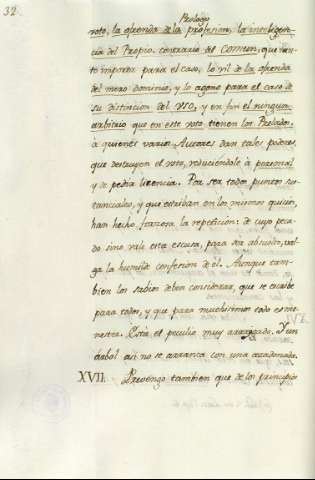 32.
Prologo
voto, la ofrenda de la profesion, la inteligen-
cia del Propio contrario del Comun, que tan-
to importa para el caso, lo vil de la ofrenda
del mero dominio, y lo ageno para el caso de
su distincion del uso, y en fin el ningun
arbitrio que en este voto tienen los Prelados,
à quienes varios Autores dan tales poderes,
que destruyen el voto, reduciendole à
y de pedir licencia. Por ser todos puntos sus-
tanciales, y que estriban en los mismos quicios,
han hecho franzosa la repeticion: de cuyo peca-
do sino vale esta escusa, para ser absuelto, val-
ga la humilde confesion de el. Aunque tam-
bien los sabios deben considerar, que se escribe
para todos, y que para muchisimos todo es me-
nester. Està el peculio muy arraygado. Y un
arbol asi no se arranca con una azadonada.
XVII. Prevengo tambien que de los principios